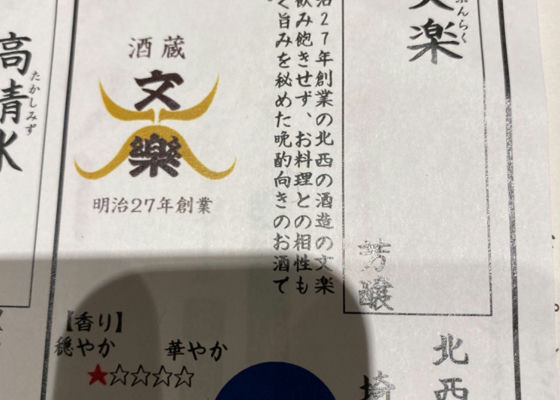 文楽
ぶんらく
芳醸
北西
埼
治27年創業の北西の酒造の文楽
飲み飽きせず、お料理との相性も
く旨みを秘めた晩酌向きのお酒で
酒蔵
文
樂
明治27年創業
【香り】
穏やか 華やか
★☆☆☆☆
高清水
たかしみず